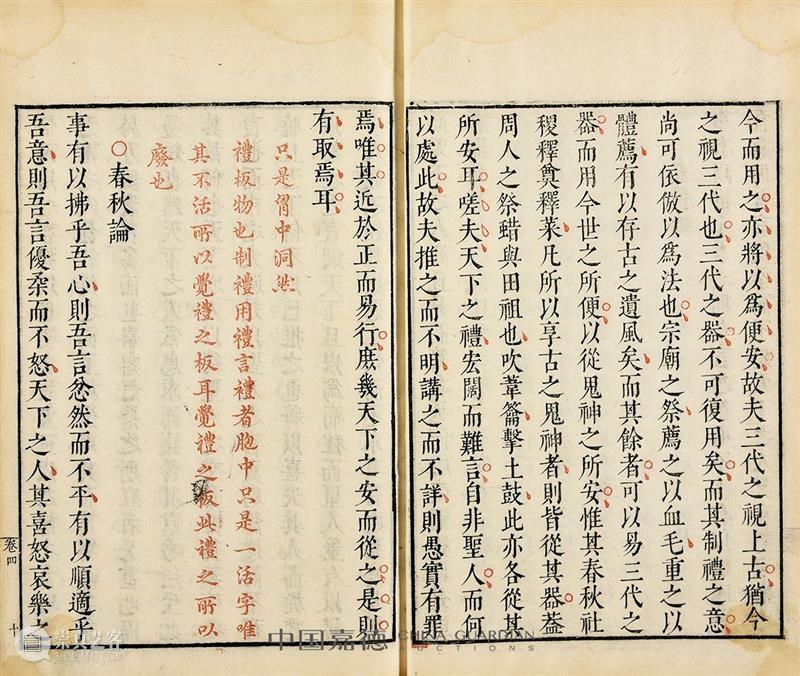 今而用之亦將以爲便安故夫三代之視上古猶今
之視三代也三代之器不可復用矣而其制禮之意
尚可依倣以爲法也宗廟之祭薦之以血毛重之以
體薦有以存古之遺風矣而其餘者可以易三代之
器而用今世之所便以從鬼神之所安惟其春秋社
稷釋奠釋菜凡所以享古之鬼神者則皆從其器葢
周人之祭蜡與田祖也吹葦籥擊土鼓此亦各從其
所安耳嗟夫天下之禮宏闊而難言自非聖人而何
以處此故夫推之而不明講之而不詳則愚實有罪
焉唯其近於正而易行庶幾天下之安而從之是則
有取焉耳
只是胷中洞然
禮板物也制禮用禮言禮者胞中只是一活字唯
其不活所以覺禮之板耳覺禮之板此禮之所以
廢也
○春秋論
事有以拂乎吾心則吾言忿然而不平有以順適乎
吾意則吾言優柔而不怒天下之人其喜怒哀樂之
卷四
十
中国嘉德
CHINA GUARDIAN
AUCTIONS